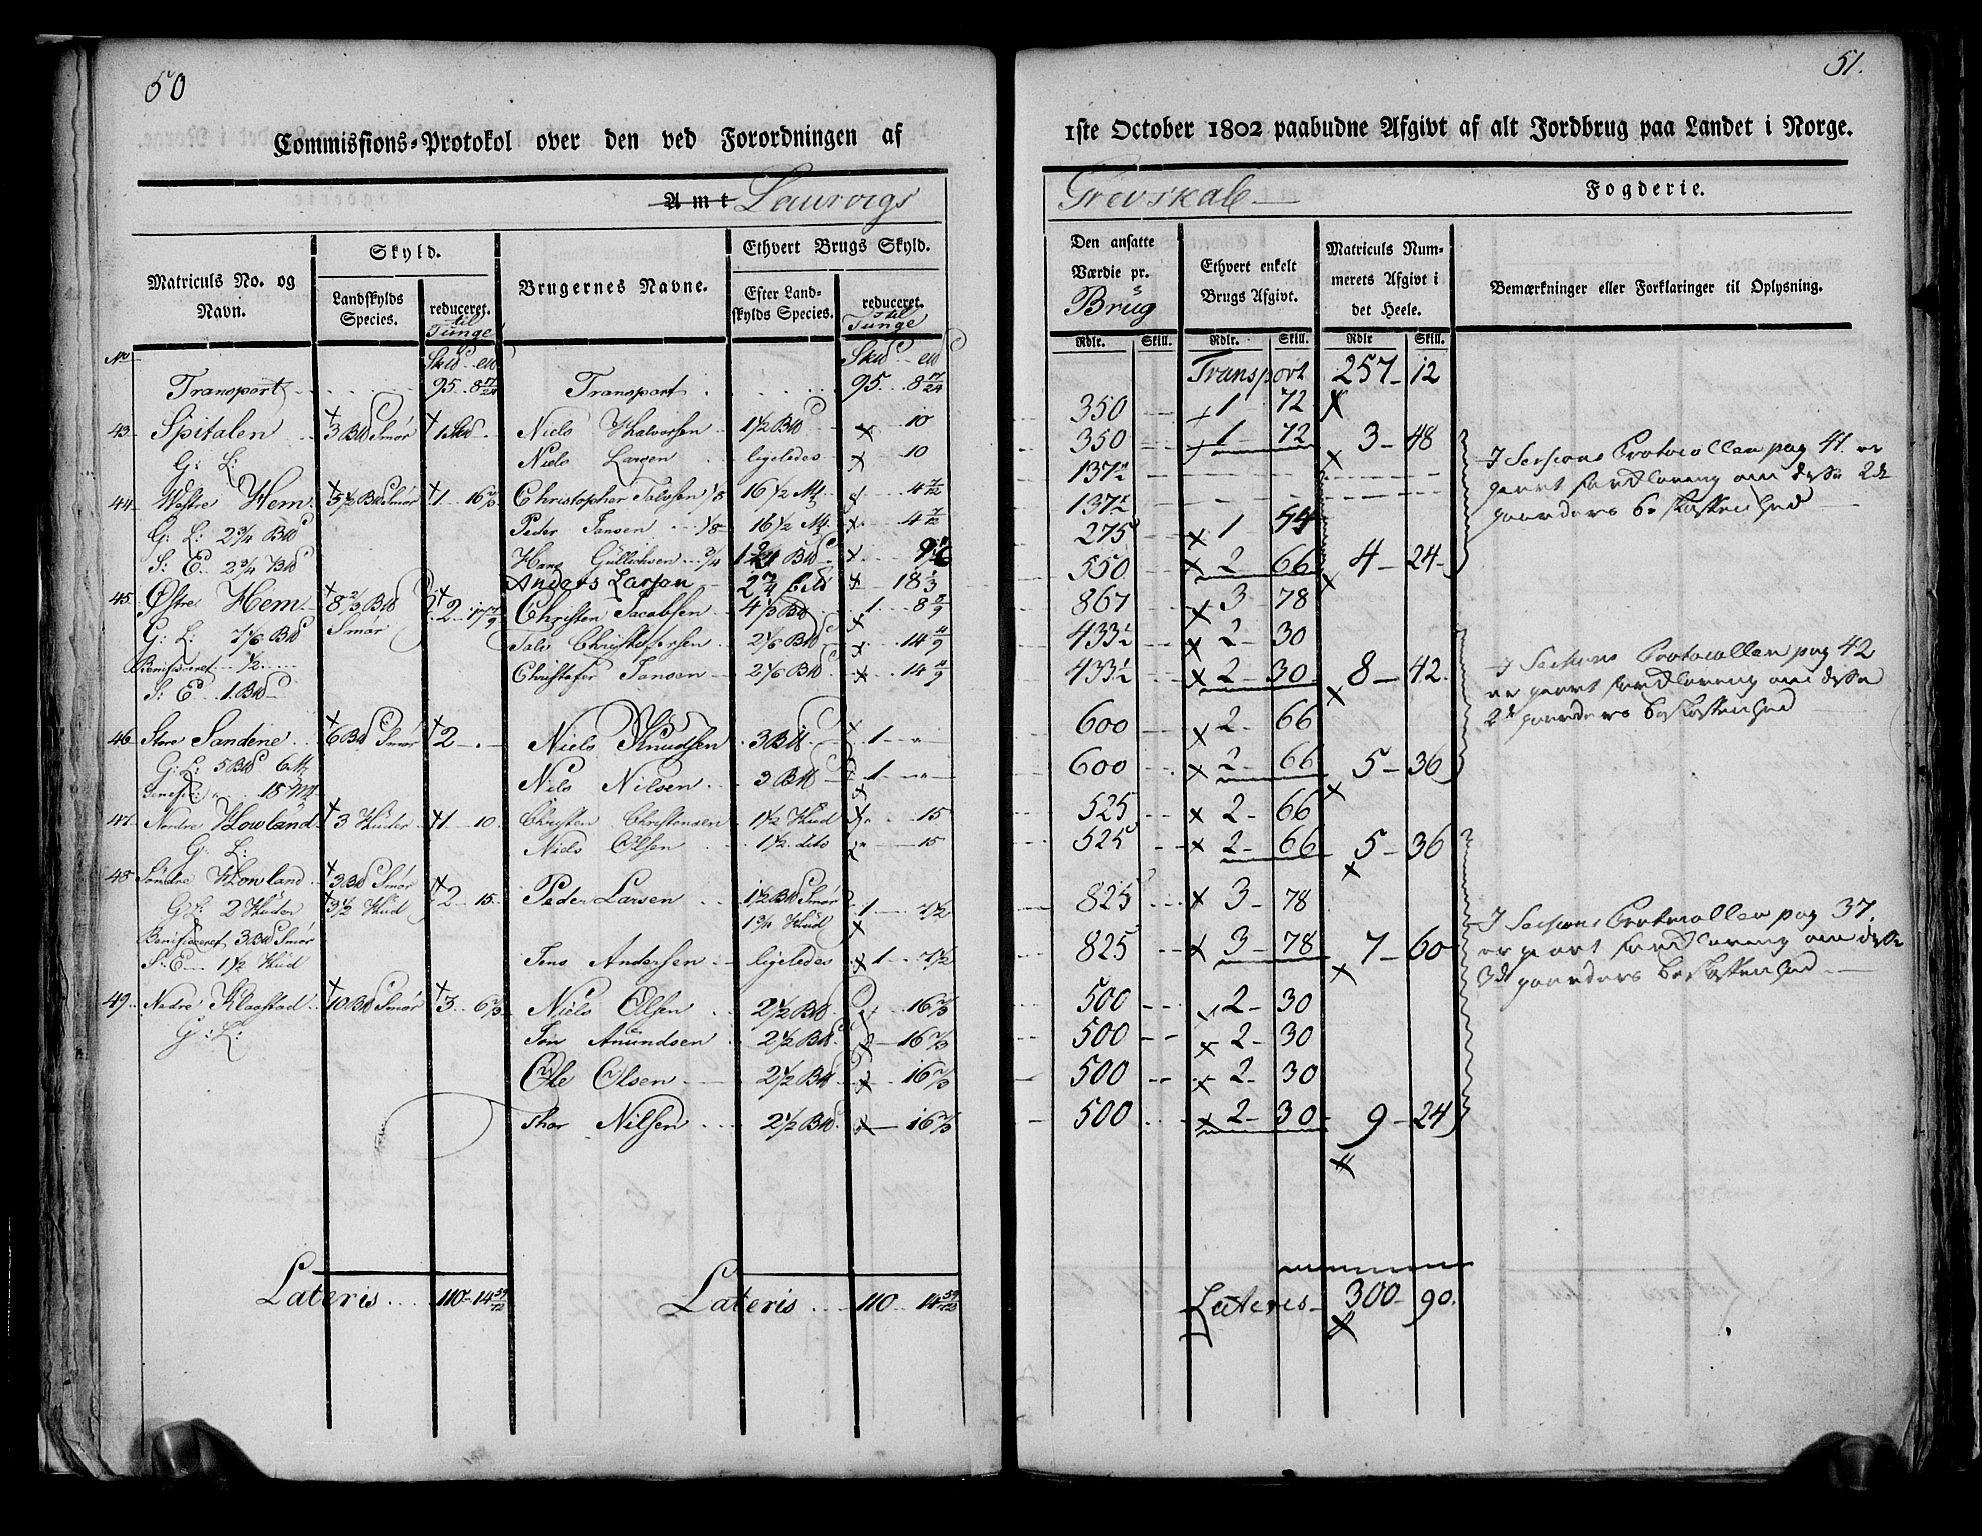 50
Commissions-Protokol over den ved Forordningen af
Amt Laurvigs
Matriculs No. og Navn.
Skyld.
Landskylds Species.
reduceret. til Tunge
Brugernes Navne.
Ethvert Brugs Skyld.
Efter Landskylds Species.
reduceret. til Tunge
No
Transport 95. 8 17/24 Transport 95. 8 17/24
43. Spitalen 3 Bd Smør 1 Skd Niels Halvorsen 1½ Bd 10
G: L: Niels Larsen ligeledes 10
44. Westre Hem 5½ Bd Smør 1 16 2/3 Christopher Talofsen 1/8 16½ M 4 7/12
G: L: 2¾ Bd Peder Jansen 1/8 16½ M 4 7/12
S: E. 2¾ Bd Hans Gulliksen ¾
Anders Larsen 2¾ 18 1/3
45. Østre Hem 8 2/3 Bd Smør 2 17 7/9 Christen Jacobsen 4 1/3 Bd 1 8 8/9
G: L: 7 1/6 Bd Talo Christofersen 2 1/6 Bd 14 4/9
Benificeret ½ Christofer Jansen 2 1/6 Bd 14 4/9
S: E. 1 Bd
46. Store Sandene 6 Bd Smør 2 Niels Knudsen 3 Bd 1
G: L: 5 Bd 6 M Nils Nilsen 3 Bd 1
Benefi: 18 M
47. Nordre Howland 3 Huder 1 10 Christen Christensen 1½ Hud 15
G: L: Niels Olsen 1½ dito 15
48. Søndre Howland 3 Bd Smør 2 15 Peder Larsen 1½ Bd Smør 1 7½
G: L: 2 Huder 3½ Hud 1¾ Hud
Benificeret 3 Bd Smør
S: E 1½ Hud Jens Andersen ligeledes 1 7½
49. Nedre Klaastad 10 Bd Smør 3 6 2/3 Niels Olsen 2½ Bd 16 2/3
G: L: Jøn Amundsen 2½ Bd 16 2/3
Ole Olsen 2½ Bd 16 2/3
Thor Nilsen 2½ Bd 16 2/3
Lateris 110 14 59/72 Lateris 110 14 59/72
51.
1ste October 1802 paabudne Afgivt af alt Jordbrug paa Landet i Norge.
Grevskab Fogderie.
Den ansatte Værdie pr. Brug
Ethvert enkelt Brugs Afgivt.
Matriculs Nummerets Afgivt i det Heele.
Bemærkninger eller Forklaringer til Oplysning.
Rdlr. Skill. Rdlr. Skill. Rdlr Skill.
Transport 257 12
350 1 72
350 1 72 3 48
137½
137½
275 1 54
550 2 66 4 24
867 3 78
433½ 2 30
433½ 2 30 8 42
600 2 66
600 2 66 5 36
525 2 66
525 2 66 5 36
825 3 78
825 3 78 7 60
500 2 30
500 2 30
500 2 30
500 2 30 9 24
Lateris 300 90.
I Sessions Protocollen pag 41. er
giort Forklaring om disse 2de
gaarders Beskaffenhed
I Sessions Protocollen pag 42
er giort Forklaring om disse
2de gaarders beskaffenhed
I Sessions Protocollen pag 37.
er giort Forklaring om disse
3de gaarders beskaffenhed